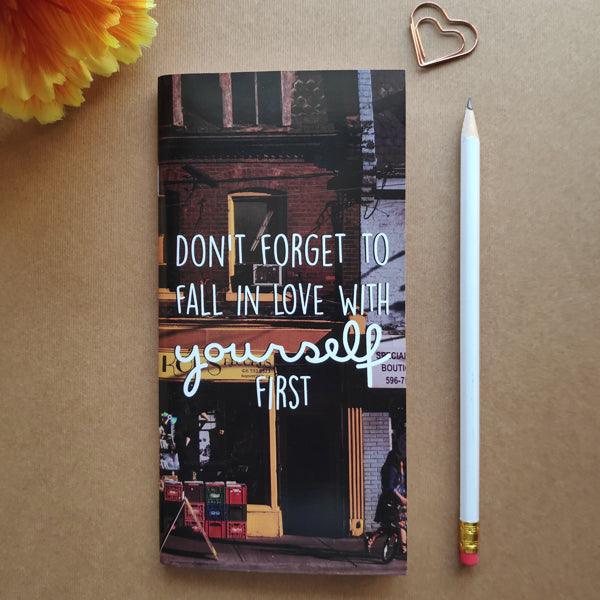 DON'T FORGET TO
FALL IN LOVE WITH
yourself
FIRST
SPECIAL
BOUTI
596-7